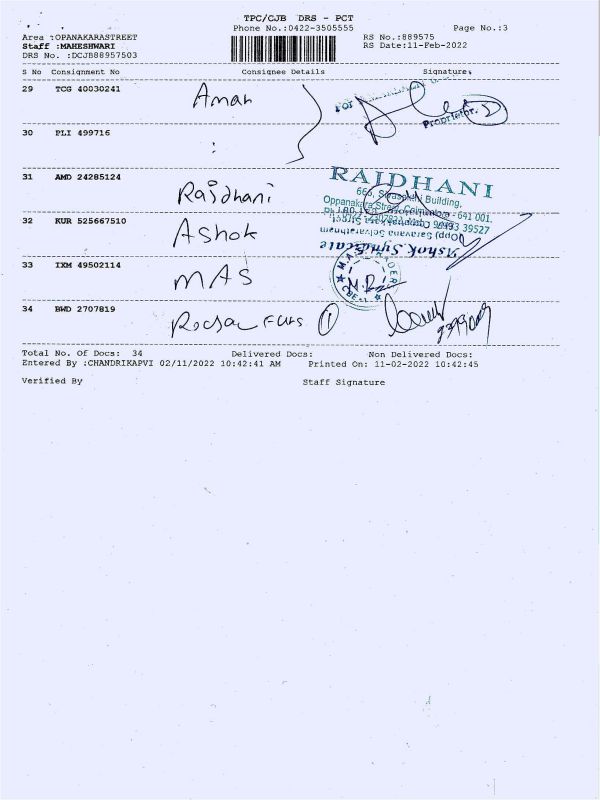 TPC/CJB DRS - PCT
Phone No.:0422-3505555 Page No.:3
Area :OPANAKARASTREET RS No.:889575
Staff :MAHESHWARI RS Date:11-Feb-2022
DRS No. :DCJB88957503
S No Consignment No Consignee Details Signature
29 TCG 40030241 Aman
For
Proprietor.
30 PLI 499716
:
31 AMD 24285124 Rajdhani
RAJDHANI
665, Sivasakthi Building,
Oppanakara Street, Coimbatore - 641 001.
39527
32 KUR 525667510 Ashok
(opp) Saravana Selvarathnam
Ashok Syndicate
33 IXM 49502114 MAS
34 BWD 2707819
Total No. Of Docs: 34 Delivered Docs: Non Delivered Docs:
Entered By :CHANDRIKAPVI 02/11/2022 10:42:41 AM Printed On: 11-02-2022 10:42:45
Verified By Staff Signature